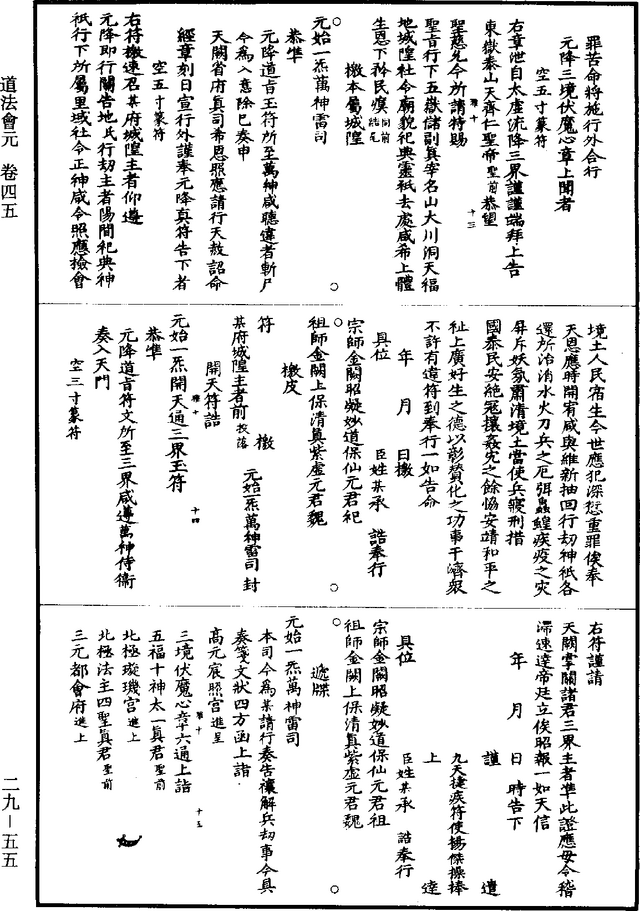 罪苦命將施行外合行
元降三境伏魔心章上聞者
空五寸篆符
右章泄自太虛流降三界謹謹端拜上告
東嶽泰山天齊仁聖帝聖前恭望
聖慈允今所請特賜
聖旨行下五嶽儲副真宰名山大川洞天福
地城隍社令廟貌祀典靈祇去處咸希上體
生恩下矜民瘼
檄本屬城隍
元始一炁萬神雷司
恭準
元降道旨玉符所至萬神咸聽違者斬尸
今為入意除已奏申
天闕省府真司希恩照應請行天赦詔命
經章刻日宣行外謹奉元降真符告下者
空五寸篆符
右符檄速名某府城隍主者仰遵
元降即行關告地氏行劫主者陽間祀典神
祇行下所屬里域社令正神咸令照應撿會
境土人民宿生今世應犯深愆重罪俟奉
天恩應時開宥咸與維新抽回行劫神祇各
還所治消水火刀兵之厄弭蟲蝗疾疫之灾
屏斥妖氛肅清境土當使兵寢刑措
國泰民安絶冦攘姦宄之餘恊安靖和平之
祉上廣好生之德以彰贊化之功事干濟衆
不許有違符到奉行一如告命
年 月 日檄
具位 臣姓某承 誥奉行
宗師金闕昭凝妙道保仙元君祀
祖師金闕上保清真紫虛元君魏
檄皮
符 檄 元始一炁萬神雷司 封
某府城隍主者前
開天符誥
元始一炁開天通三界玉符
恭準
元降道旨符文所至三界咸遵萬神侍衛
奏入天門
空三寸篆符
右符謹請
天闕掌關諸君三界主者準此證應毋令稽
滯速達帝廷立俟昭報一如天信
年 月 日 時告下
謹 遣
九天捷疾符使揚傑操捧
上 達
具位 臣姓某承 誥奉行
宗師金闕昭凝妙道保仙元君祖
祖師金闕上保清真紫虛元君魏
遞牒
元始一炁萬神雷司
本司今為某請行奏告禳解兵劫事今具
奏箋文狀四方函上詣
高元宸照宮進呈
三境伏魔心章六通上詣
五福十神太一真君聖前
北極璇璣宮進上
北極法主四聖真君聖前
三元都會府進上
道法會元 卷四五
二九－五五